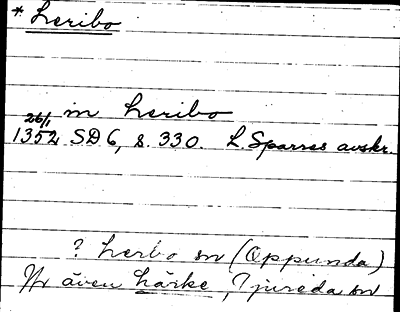 * Leribo
in Leribo
26/1
1352 SD 6, s. 330. L. Sparres avskr.
? Lerbo sn (Oppunda)
även Lärke, Tjureda sn